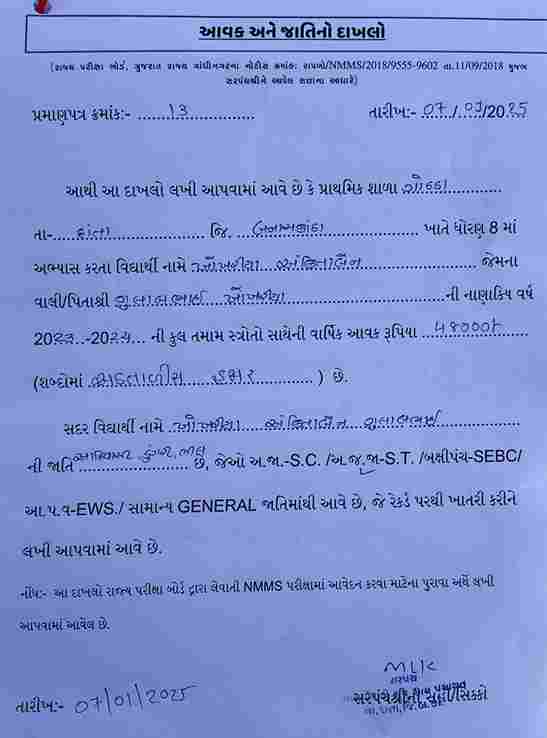 આવક અને જાતિનો દાખલો
(રાજ્ય પરીક્ષા બોર્ડ, ગુજરાત રાજ્ય ગાંધીનગરના નોટીસ ક્રમાંક: રાપબો/NMMS/2018/9555-9602 તા.11/09/2018 મુજબ
સરપંચશ્રીને આપેલ સત્તાના આધારે)
પ્રમાણપત્ર ક્રમાંક:- ........13............ તારીખ:- 07/07/2025
આથી આ દાખલો લખી આપવામાં આવે છે કે પ્રાથમિક શાળા
તા-....દાંતા.... જિ. બનાસકાંઠા ખાતે ધોરણ 8 માં
અભ્યાસ કરતા વિદ્યાર્થી નામે જેમના
વાલી/પિતાશ્રી ગુલાબભાઈ ની નાણાકિય વર્ષ
2023-2024 ની કુલ તમામ સ્ત્રોતો સાથેની વાર્ષિક આવક રૂપિયા 48000/
(શબ્દોમાં અડતાળીસ હજાર ) છે.
સદર વિદ્યાર્થી નામે ગુલાબભાઈ
ની જાતિ છે, જેઓ અ.જા.-S.C. /અ.જ.જા-S.T. /બક્ષીપંચ-SEBC/
આ.પ.વ-EWS./ સામાન્ય GENERAL જાતિમાંથી આવે છે, જે રેકર્ડ પરથી ખાતરી કરીને
લખી આપવામાં આવે છે.
નોંધ:- આ દાખલો રાજ્ય પરીક્ષા બોર્ડ દ્વારા લેવાતી NMMS પરીક્ષામાં આવેદન કરવા માટેના પુરાવા અર્થે લખી
આપવામાં આવેલ છે.
સરપંચ
તારીખ:- 07/01/2025 સરપંચશ્રીની સહી/સિક્કો